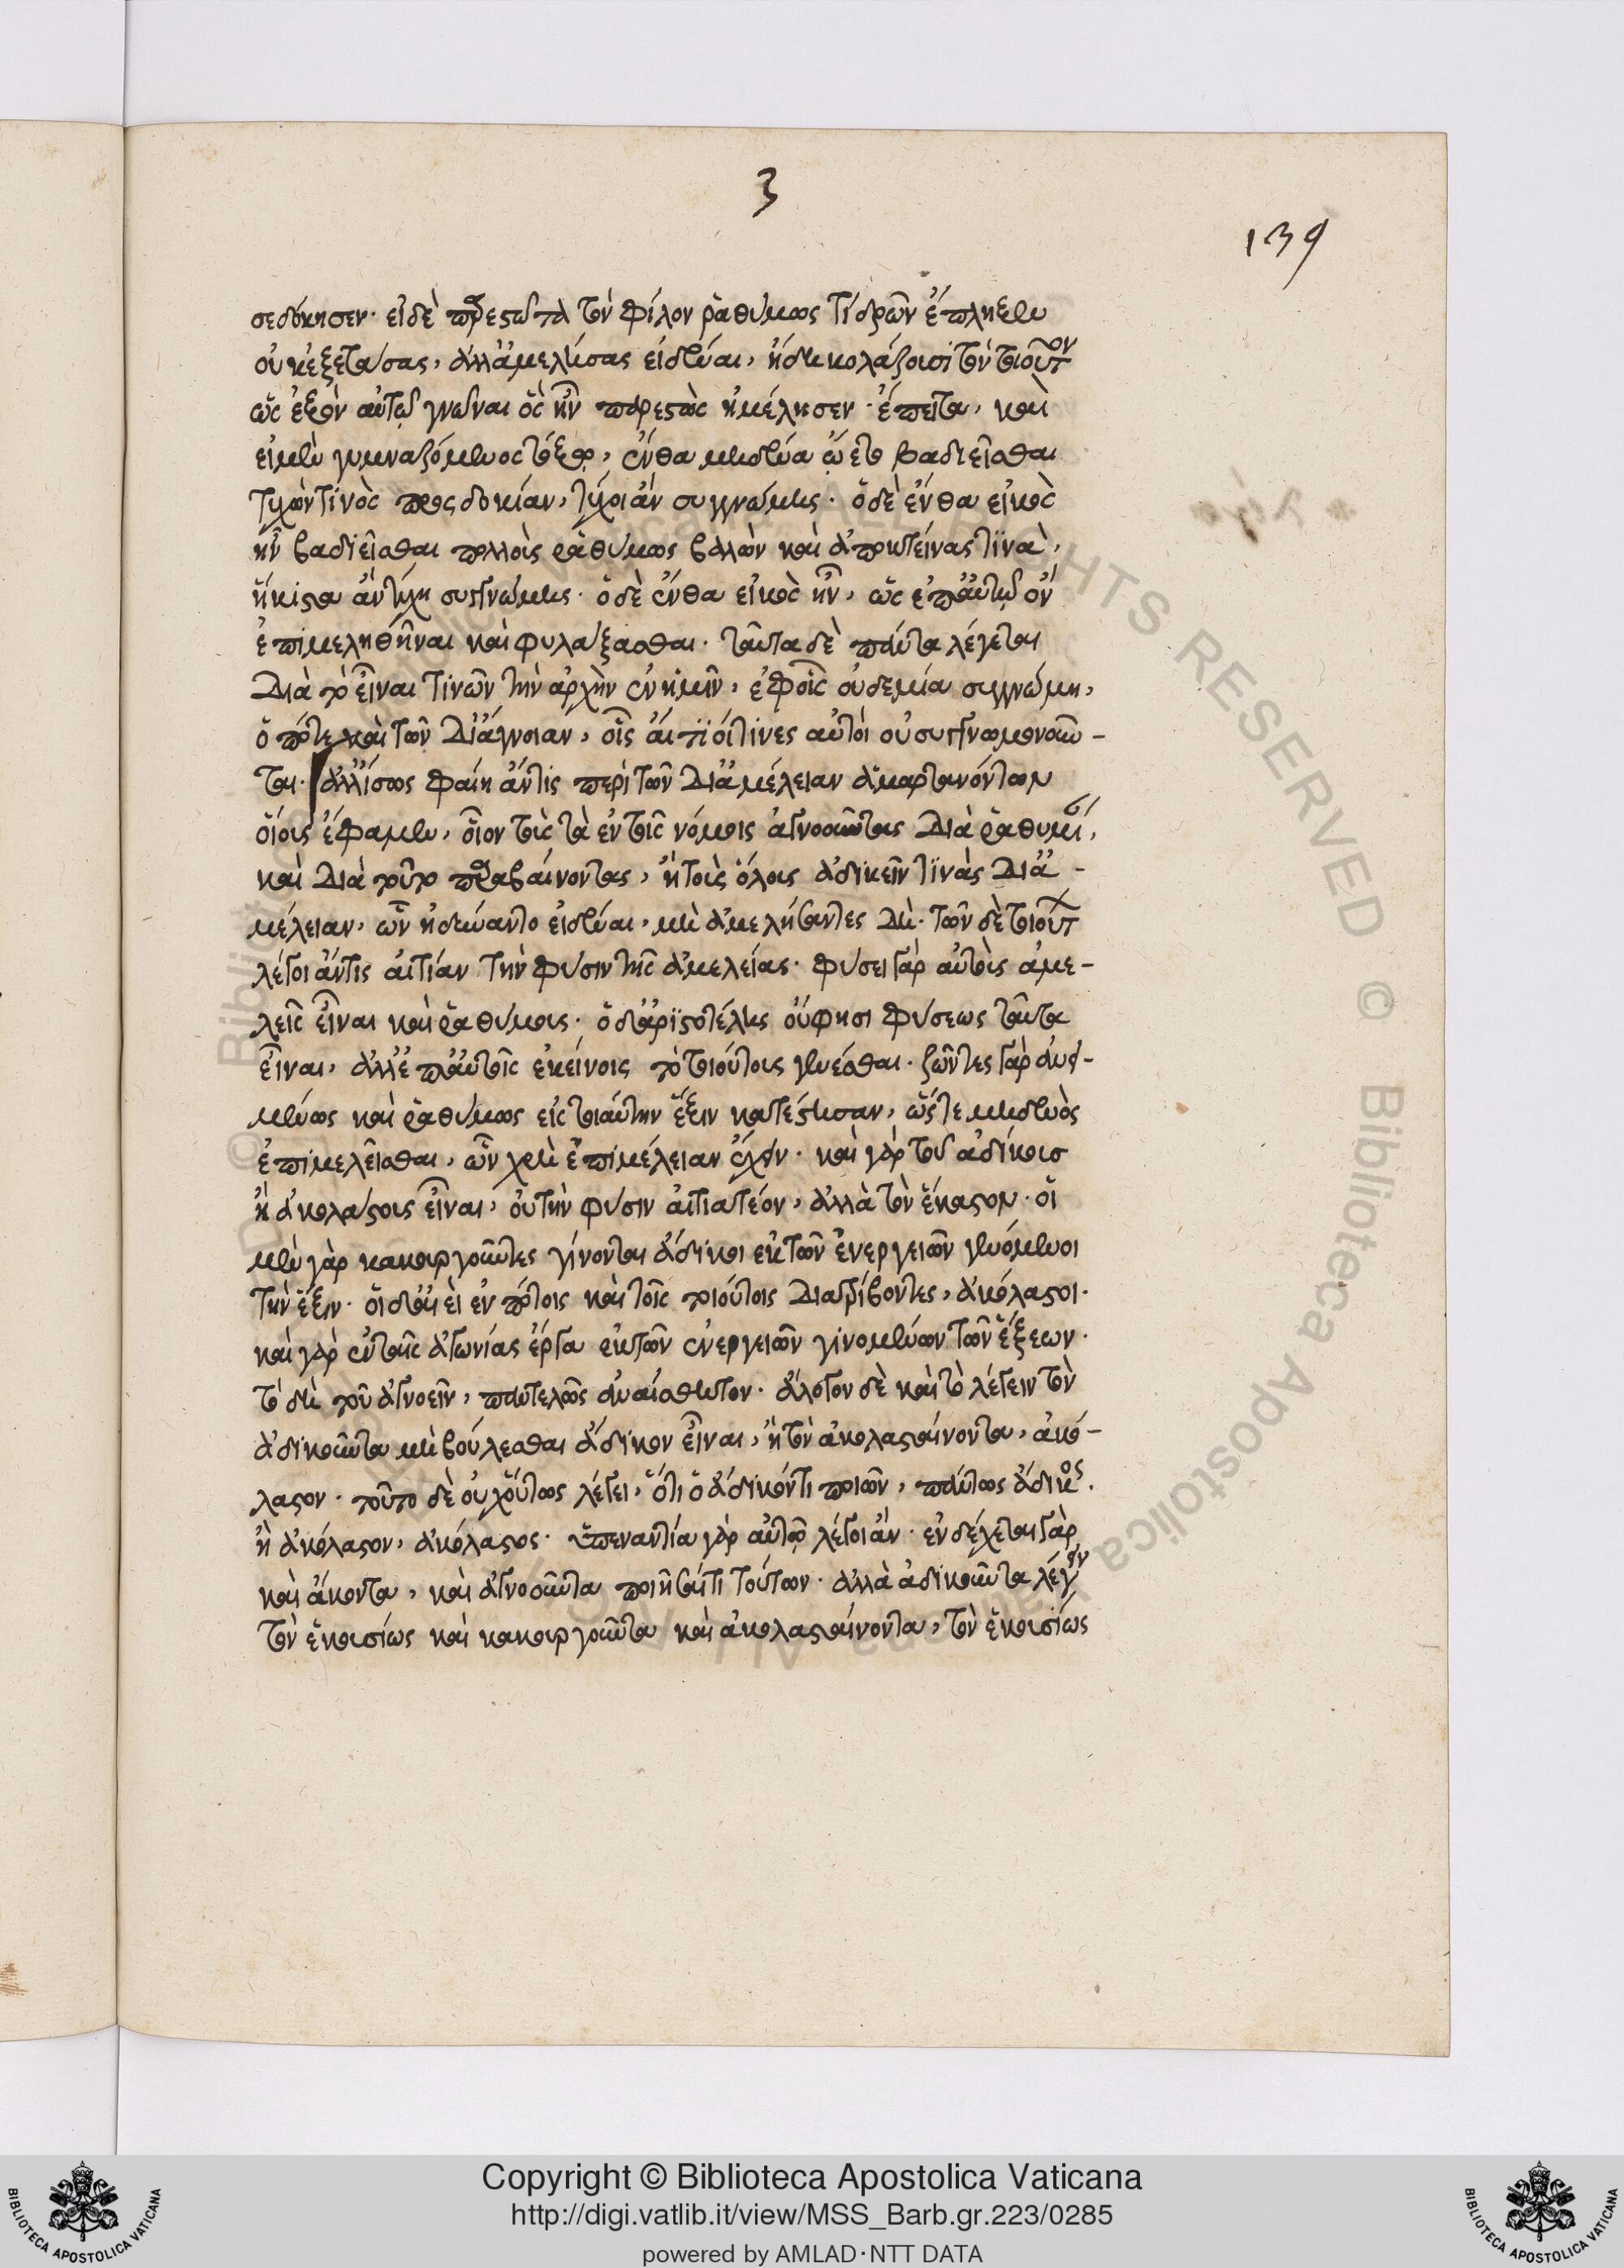 3
139
σεδόκησεν. εἰ δὲ παρεστῶτα τὸν φίλον ῥαθύμως τὶ δρῶν ἔπληξεν
οὐκ ἐξετάσας, ἀλλ' ἀμελήσας εἰδέναι, ἤδη κολάζουσι τὸν τοιοῦτον
ὡς ἐξὸν αὐτῷ γνῶναι ὃς ἦν παρεστὼς ἠμέλησεν. ἔπειτα, καὶ
εἰ μὲν γυμναζόμενος τόξῳ, ἔνθα μηδένα ᾤετο βαδιεῖσθαι
τυχών τινὸς προσδοκίαν, τύχοι ἂν συγγνώμης. ὁ δὲ ἔνθα εἰκὸς
ἦν βαδιεῖσθαι πολλοὺς ῥαθύμως βαλὼν καὶ ἀποκτείνας τινὰ,
ἥκιστα ἂν τύχῃ συγγνώμης. ὁ δὲ ἔνθα εἰκὸς ἦν, ὡς ἐπ' αὐτῷ ὂν
ἐπιμεληθῆναι καὶ φυλάξασθαι. ταῦτα δὲ πάντα λέγεται
Διὰ τὸ εἶναι τινῶν τὴν ἀρχὴν ἐν ἡμῖν, ἐφ' οἷς οὐδεμία συγγνώμη,
ὁπότε καὶ τῶν δι' ἄγνοιαν, οἷς αἴτιοί τινες αὐτοὶ οὐ συγγνωμονοῦν-
ται. ἀλλ' ἴσως φαίη ἄν τις περὶ τῶν δι' ἀμέλειαν ἁμαρτανόντων
οἵους ἔφαμεν, οἷον τοὺς τὰ ἐν τοῖς νόμοις ἀγνοοῦντας διὰ ῥαθυμί,
καὶ διὰ τοῦτο παραβαίνοντας, ἢ τοὺς ὅλους ἀδικεῖν τινὰς δι' ἀ-
μέλειαν, ὧν ἠδύναντο εἰδέναι, μὴ ἀμελήσαντες δή. τῶν δὲ τοιούτ
λέγοι ἄν τις αἰτίαν τὴν φύσιν τῆς ἀμελείας. φύσει γὰρ αὐτοὺς ἀμε-
λεῖς εἶναι καὶ ῥαθύμους. ὁ δ' ἀριστοτέλης οὔ φησι φύσεως ταῦτα
εἶναι, ἀλλ' ἐπ' αὐτοῖς ἐκείνοις τὸ τοιούτοις γενέσθαι. ζῶντες γὰρ ἀνει-
μένως καὶ ῥαθύμως εἰς τοιαύτην ἕξιν κατέστησαν, ὥστε μηδενὸς
ἐπιμελεῖσθαι, ὧν χρὴ ἐπιμέλειαν ἔχειν. καὶ γὰρ τοῦ ἀδίκους
ἢ ἀκολάστους εἶναι, οὐ τὴν φύσιν αἰτιατέον, ἀλλὰ τὸν ἕκαστον. οἱ
μὲν γὰρ κακουργοῦντες γίνονται ἄδικοι ἐκ τῶν ἐνεργειῶν γενόμενοι
τὴν ἕξιν. οἱ δ' ἀεὶ ἐν πότοις καὶ τοῖς τοιούτοις διατρίβοντες, ἀκόλαστοι.
καὶ γὰρ ἐν ταῖς ἀγωνίας ἔργα ἐκ τῶν ἐνεργειῶν γινομένων τῶν ἕξεων.
τὸ δὴ τοῦ ἀγνοεῖν, παντελῶς ἀναίσθητον. ἄλογον δὲ καὶ τὸ λέγειν τὸν
ἀδικοῦντα μὴ βούλεσθαι ἄδικον εἶναι, ἢ τὸν ἀκολασταίνοντα, ἀκό-
λαστον. τοῦτο δὲ οὐχ οὕτως λέγει, ὅτι ὁ ἄδικόν τι ποιῶν, πάντως ἄδικος.
ἢ ἀκόλαστον, ἀκόλαστος. ὑπεναντία γὰρ αὐτῷ λέγοι ἄν. ἐνδέχεται γὰρ
καὶ ἄκοντα, καὶ ἀγνοοῦντα ποιῆσαί τι τούτων. ἀλλὰ ἀδικοῦντα λέγειν
τὸν ἑκουσίως καὶ κακουργοῦντα καὶ ἀκολασταίνοντα, τὸν ἑκουσίως
Copyright © Biblioteca Apostolica Vaticana
http://digi.vatlib.it/view/MSS_Barb.gr.223/0285
powered by AMLAD·NTT DATA